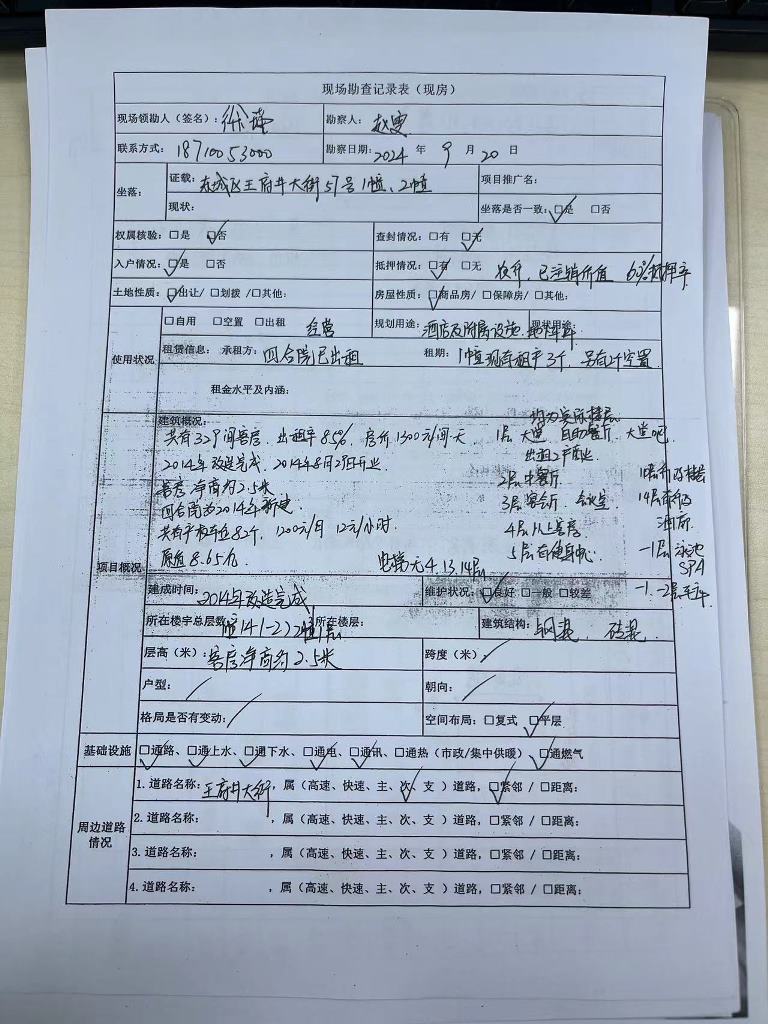 现场勘查记录表（现房）
现场领勘人（签名）： 勘察人：
联系方式：18710053000 勘察日期：2024 年 9 月 20 日
坐落： 证载：东城区王府井大街57号1幢、2幢 项目推广名：
现状： 坐落是否一致：☑是 □否
权属核验：□是 ☑否 查封情况：□有 ☑无
入户情况：☑是 □否 抵押情况：☑有 □无 已注销 价值 60%抵押率
土地性质：☑出让/ □划拨 /□其他： 房屋性质：☑商品房/ □保障房/ □其他：
使用状况 □自用 □空置 □出租 经营 规划用途：酒店及附属设施、地下车库 现状用途：
租赁信息： 承租方：四合院已出租 租期：1幢现有租户3个，另有2个空置
租金水平及内涵：
项目概况 建筑概况：
共有329间客房，出租率85%，房价1300元/间·天
2014年改造完成，2014年8月29日开业
客房净高约2.5米
四合院为2014年新建
共有平板车位82个，1200元/月 12元/小时
原值8.65亿 电梯无4.13.14层
均为实际楼层
1层大堂 自助餐厅 大堂吧
出租2户商业
2层中餐厅
3层宴会厅 会议室
4层以上客房
5层有健身中心
14层有行政酒廊
-1层泳池 SPA
-1、-2层车库
建成时间：2014年改造完成 维护状况：☑良好 □一般 □较差
所在楼宇总层数：1幢14(-2) 2幢1层 所在楼层： 建筑结构：钢混、砖混
层高（米）：客房净高约2.5米 跨度（米）：/
户型：/ 朝向：/
格局是否有变动：/ 空间布局：□复式 ☑平层
基础设施 ☑通路、☑通上水、☑通下水、☑通电、☑通讯、□通热（市政/集中供暖）☑通燃气
周边道路情况 1. 道路名称：王府井大街，属（高速、快速、主、次✓、支）道路，☑紧邻 / □距离：
2. 道路名称： ，属（高速、快速、主、次、支）道路，□紧邻 / □距离：
3. 道路名称： ，属（高速、快速、主、次、支）道路，□紧邻 / □距离：
4. 道路名称： ，属（高速、快速、主、次、支）道路，□紧邻 / □距离：